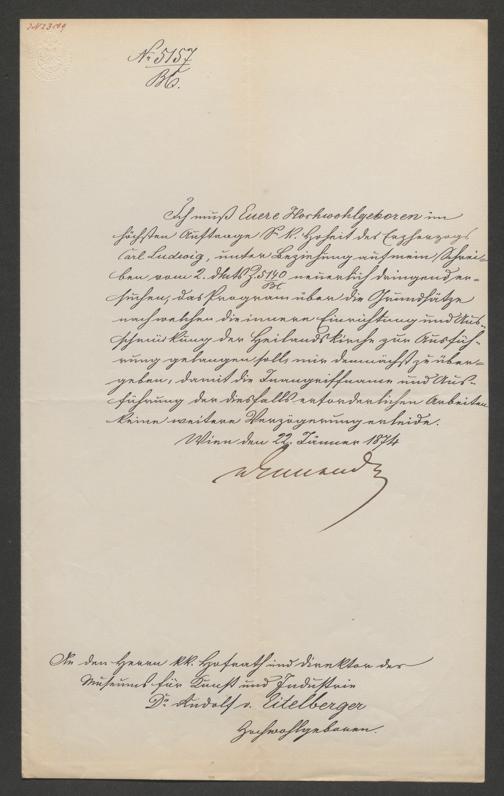 No 5157
BC.
Ich muß Euere Hochwohlgeboren im
höchsten Auftrage Sr. k. Hoheit des Erzherzogs
Carl Ludwig, unter Beziehung auf mein Schrei-
ben vom 2. d. Mts Z. 5140 neuerlich dringend er-
suchen, das Program über die Grundsätze
nach welchen die innere Einrichtung und Aus-
schmückung der Heilandskirche zur Ausfüh-
rung gelangen soll, mir demnächst zu über-
geben, damit die Inangriffname und Aus-
führung der diesfalls erforderlichen Arbeiten
keine weitere Verzögerung erleide.
Wien den 22. Jänner 1874
An den Herrn kk. Hofrath und Direktor des
Museums für Kunst und Industrie
Dr. Rudolf v. Eitelberger
Hochwohlgeboren.